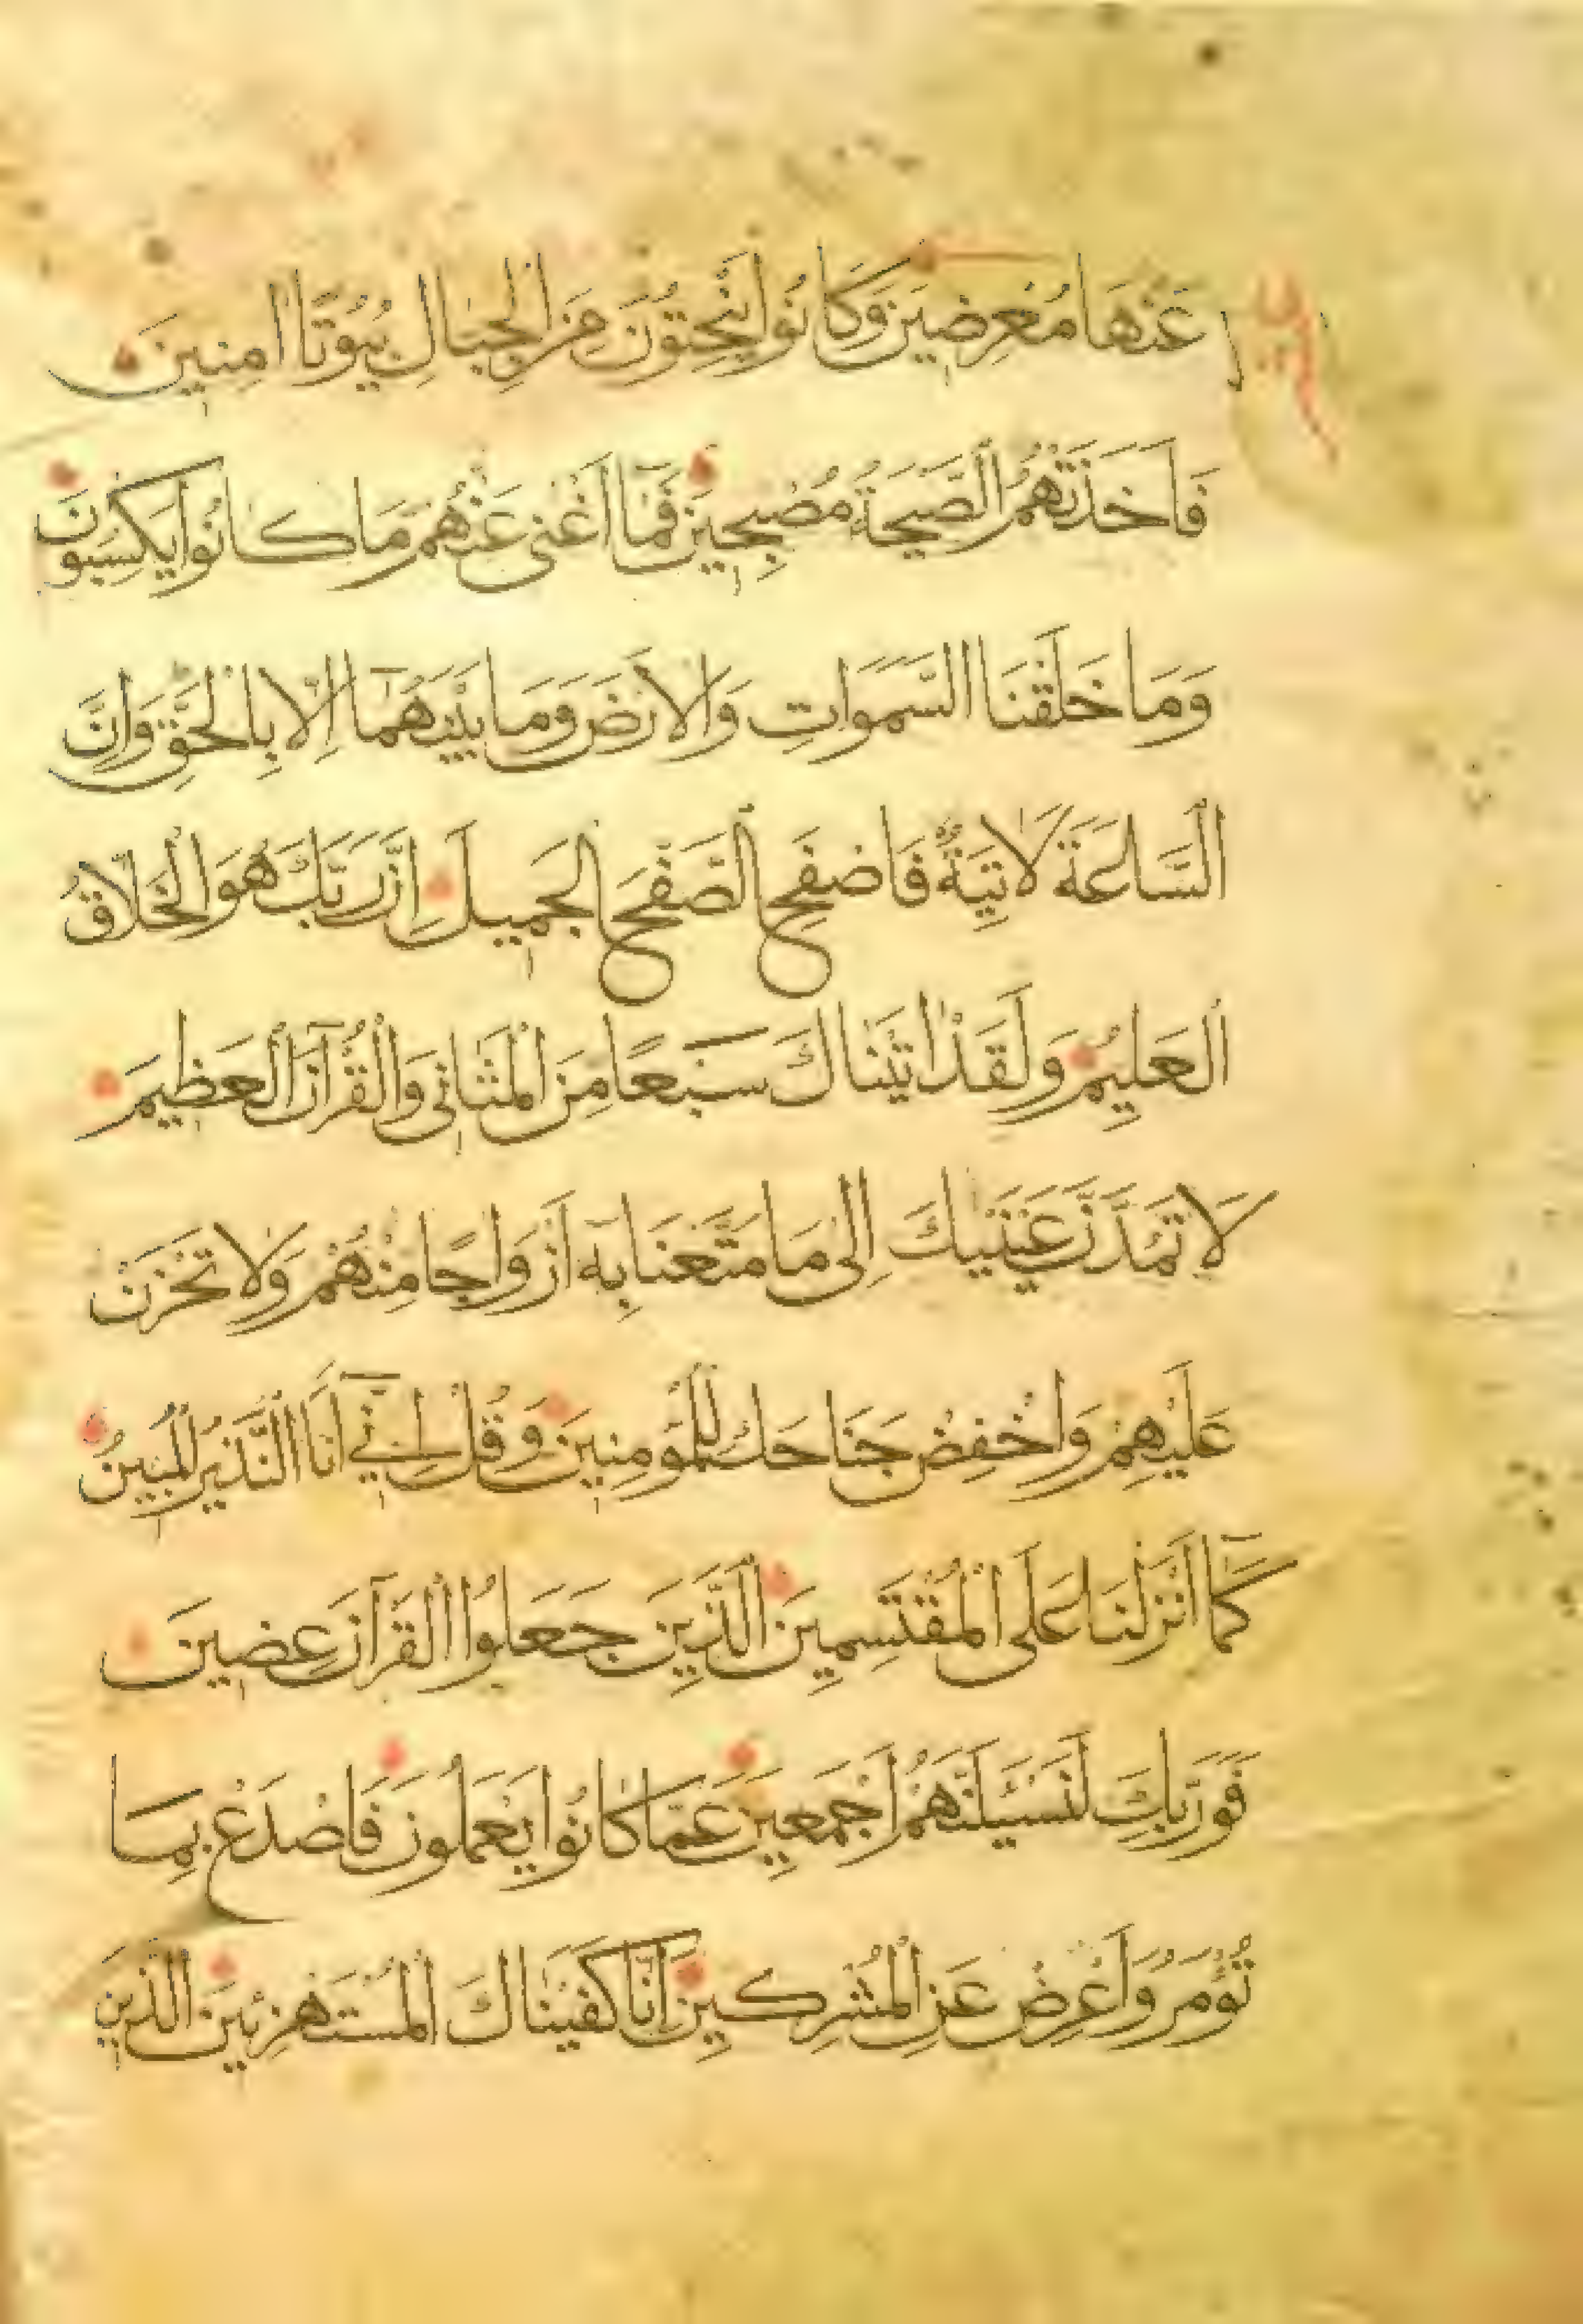 عَنْهَا مُعْرِضِينَ وَكَانُوا يَنْحِتُونَ مِنَ الْجِبَالِ بُيُوتًا اٰمِنِينَ
فَاَخَذَتْهُمُ الصَّيْحَةُ مُصْبِحِينَ فَمَٓا اَغْنٰى عَنْهُمْ مَا كَانُوا يَكْسِبُونَ
وَمَا خَلَقْنَا السَّمٰوَاتِ وَالْاَرْضَ وَمَا بَيْنَهُمَٓا اِلَّا بِالْحَقِّ وَاِنَّ
السَّاعَةَ لَاٰتِيَةٌ فَاصْفَحِ الصَّفْحَ الْجَمِيلَ اِنَّ رَبَّكَ هُوَ الْخَلَّاقُ
الْعَلِيمُ وَلَقَدْ اٰتَيْنَاكَ سَبْعًا مِنَ الْمَثَانِي وَالْقُرْآنَ الْعَظِيمَ
لَا تَمُدَّنَّ عَيْنَيْكَ اِلٰى مَا مَتَّعْنَا بِهِٓ اَزْوَاجًا مِنْهُمْ وَلَا تَحْزَنْ
عَلَيْهِمْ وَاخْفِضْ جَنَاحَكَ لِلْمُؤْمِنِينَ وَقُلْ اِنِّٓي اَنَا النَّذِيرُ الْمُبِينُ
كَمَٓا اَنْزَلْنَا عَلَى الْمُقْتَسِمِينَ الَّذِينَ جَعَلُوا الْقُرْآنَ عِضِينَ
فَوَرَبِّكَ لَنَسْئَلَنَّهُمْ اَجْمَعِينَ عَمَّا كَانُوا يَعْمَلُونَ فَاصْدَعْ بِمَا
تُؤْمَرُ وَاَعْرِضْ عَنِ الْمُشْرِكِينَ اِنَّا كَفَيْنَاكَ الْمُسْتَهْزِئِينَ الَّذِينَ